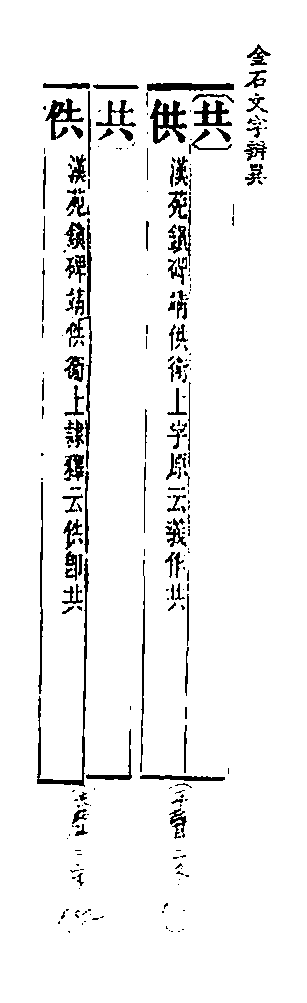 金石文字辨異
共
供
漢苑鎮碑靖供衛上字原云義作共
共
供
漢苑鎮碑靖供衛上隸釋云供即共